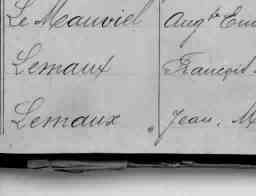 Le Mauviel Augte Em
Lemaux François
Lemaux Jean, M